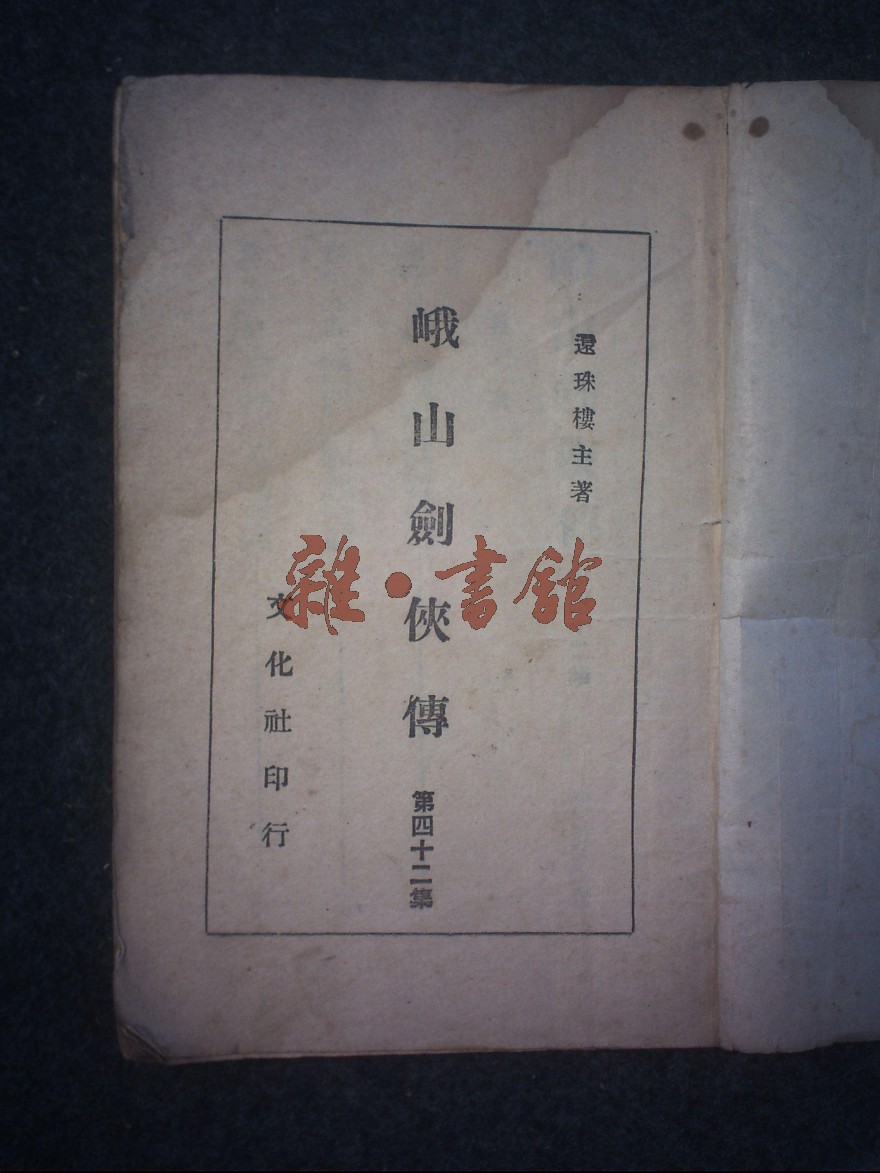 還珠樓主著
峨山劍俠傳 第四十二集
文化社印行
雜·書館